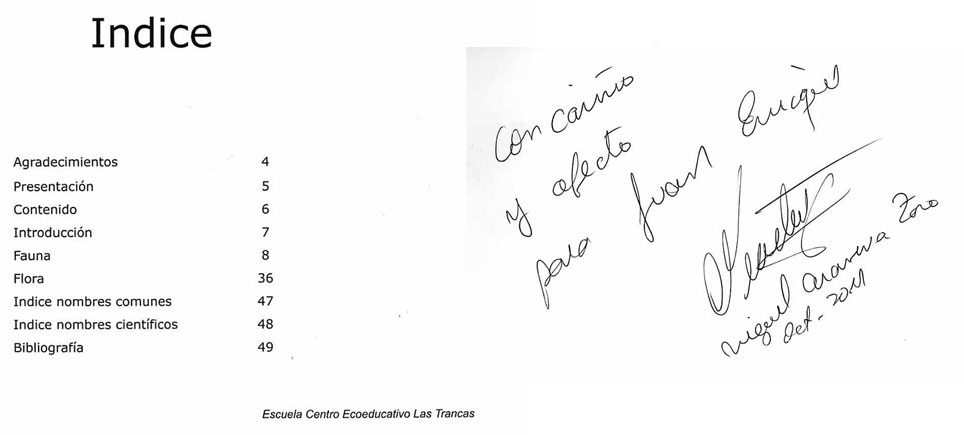 Indice
Agradecimientos 4
Presentación 5
Contenido 6
Introducción 7
Fauna 8
Flora 36
Indice nombres comunes 47
Indice nombres científicos 48
Bibliografía 49
Escuela Centro Ecoeducativo Las Trancas
Con cariño
y afecto
para Juan Enrique
Miguel
Oct - 2011